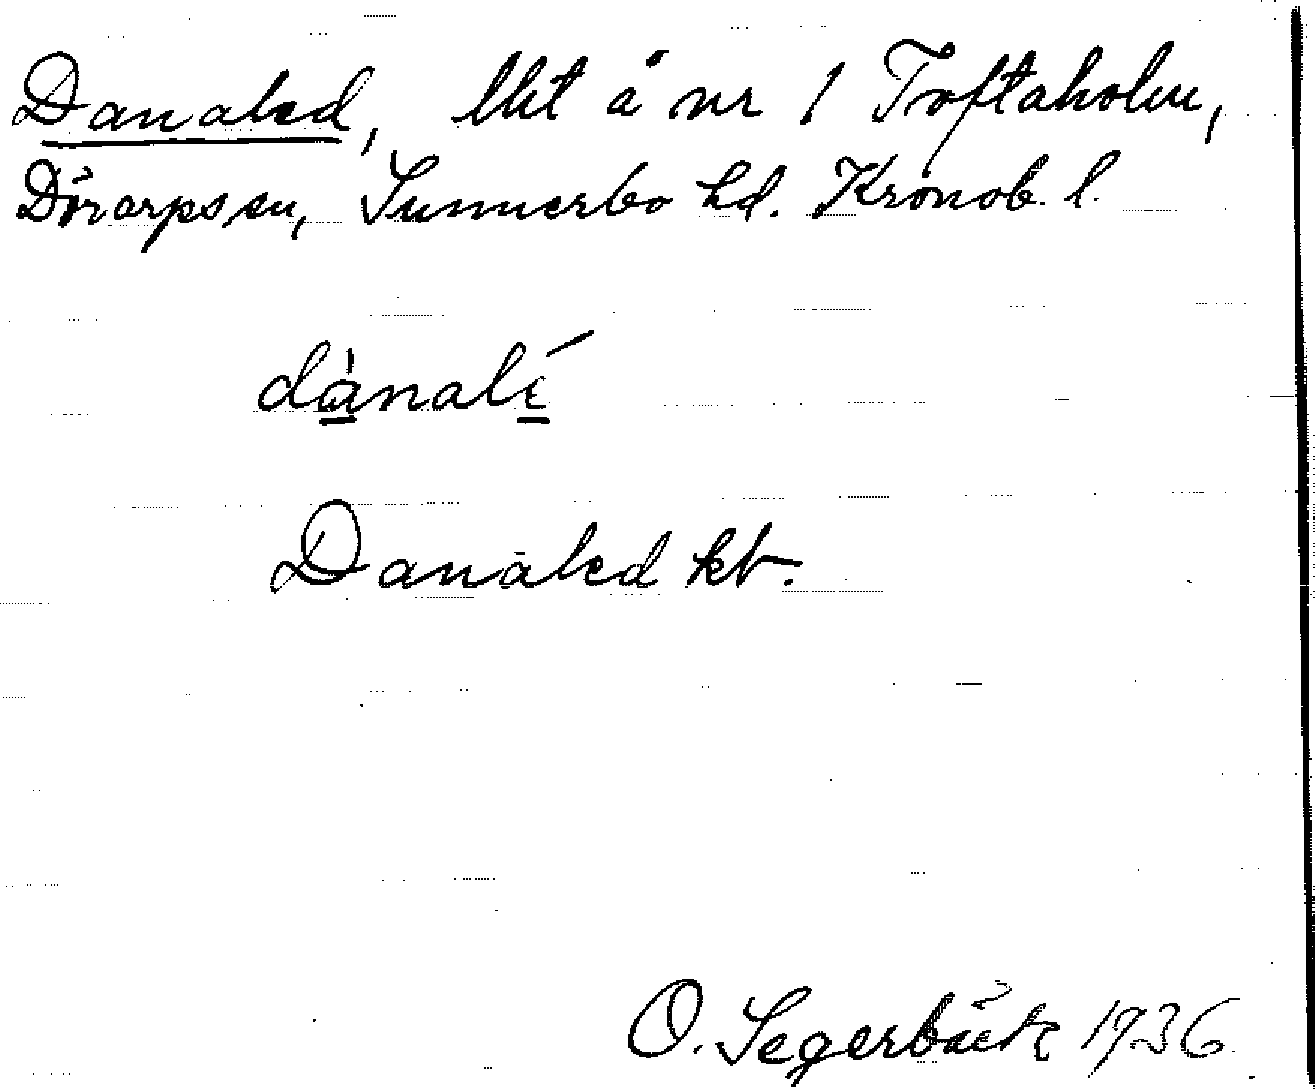 Danaled, lht å nr 1 Toftaholm,
Dörarps sn, Sunnerbo hd. Kronob. l.
dànalí
Danaled kb.
O. Segerbäck 1936